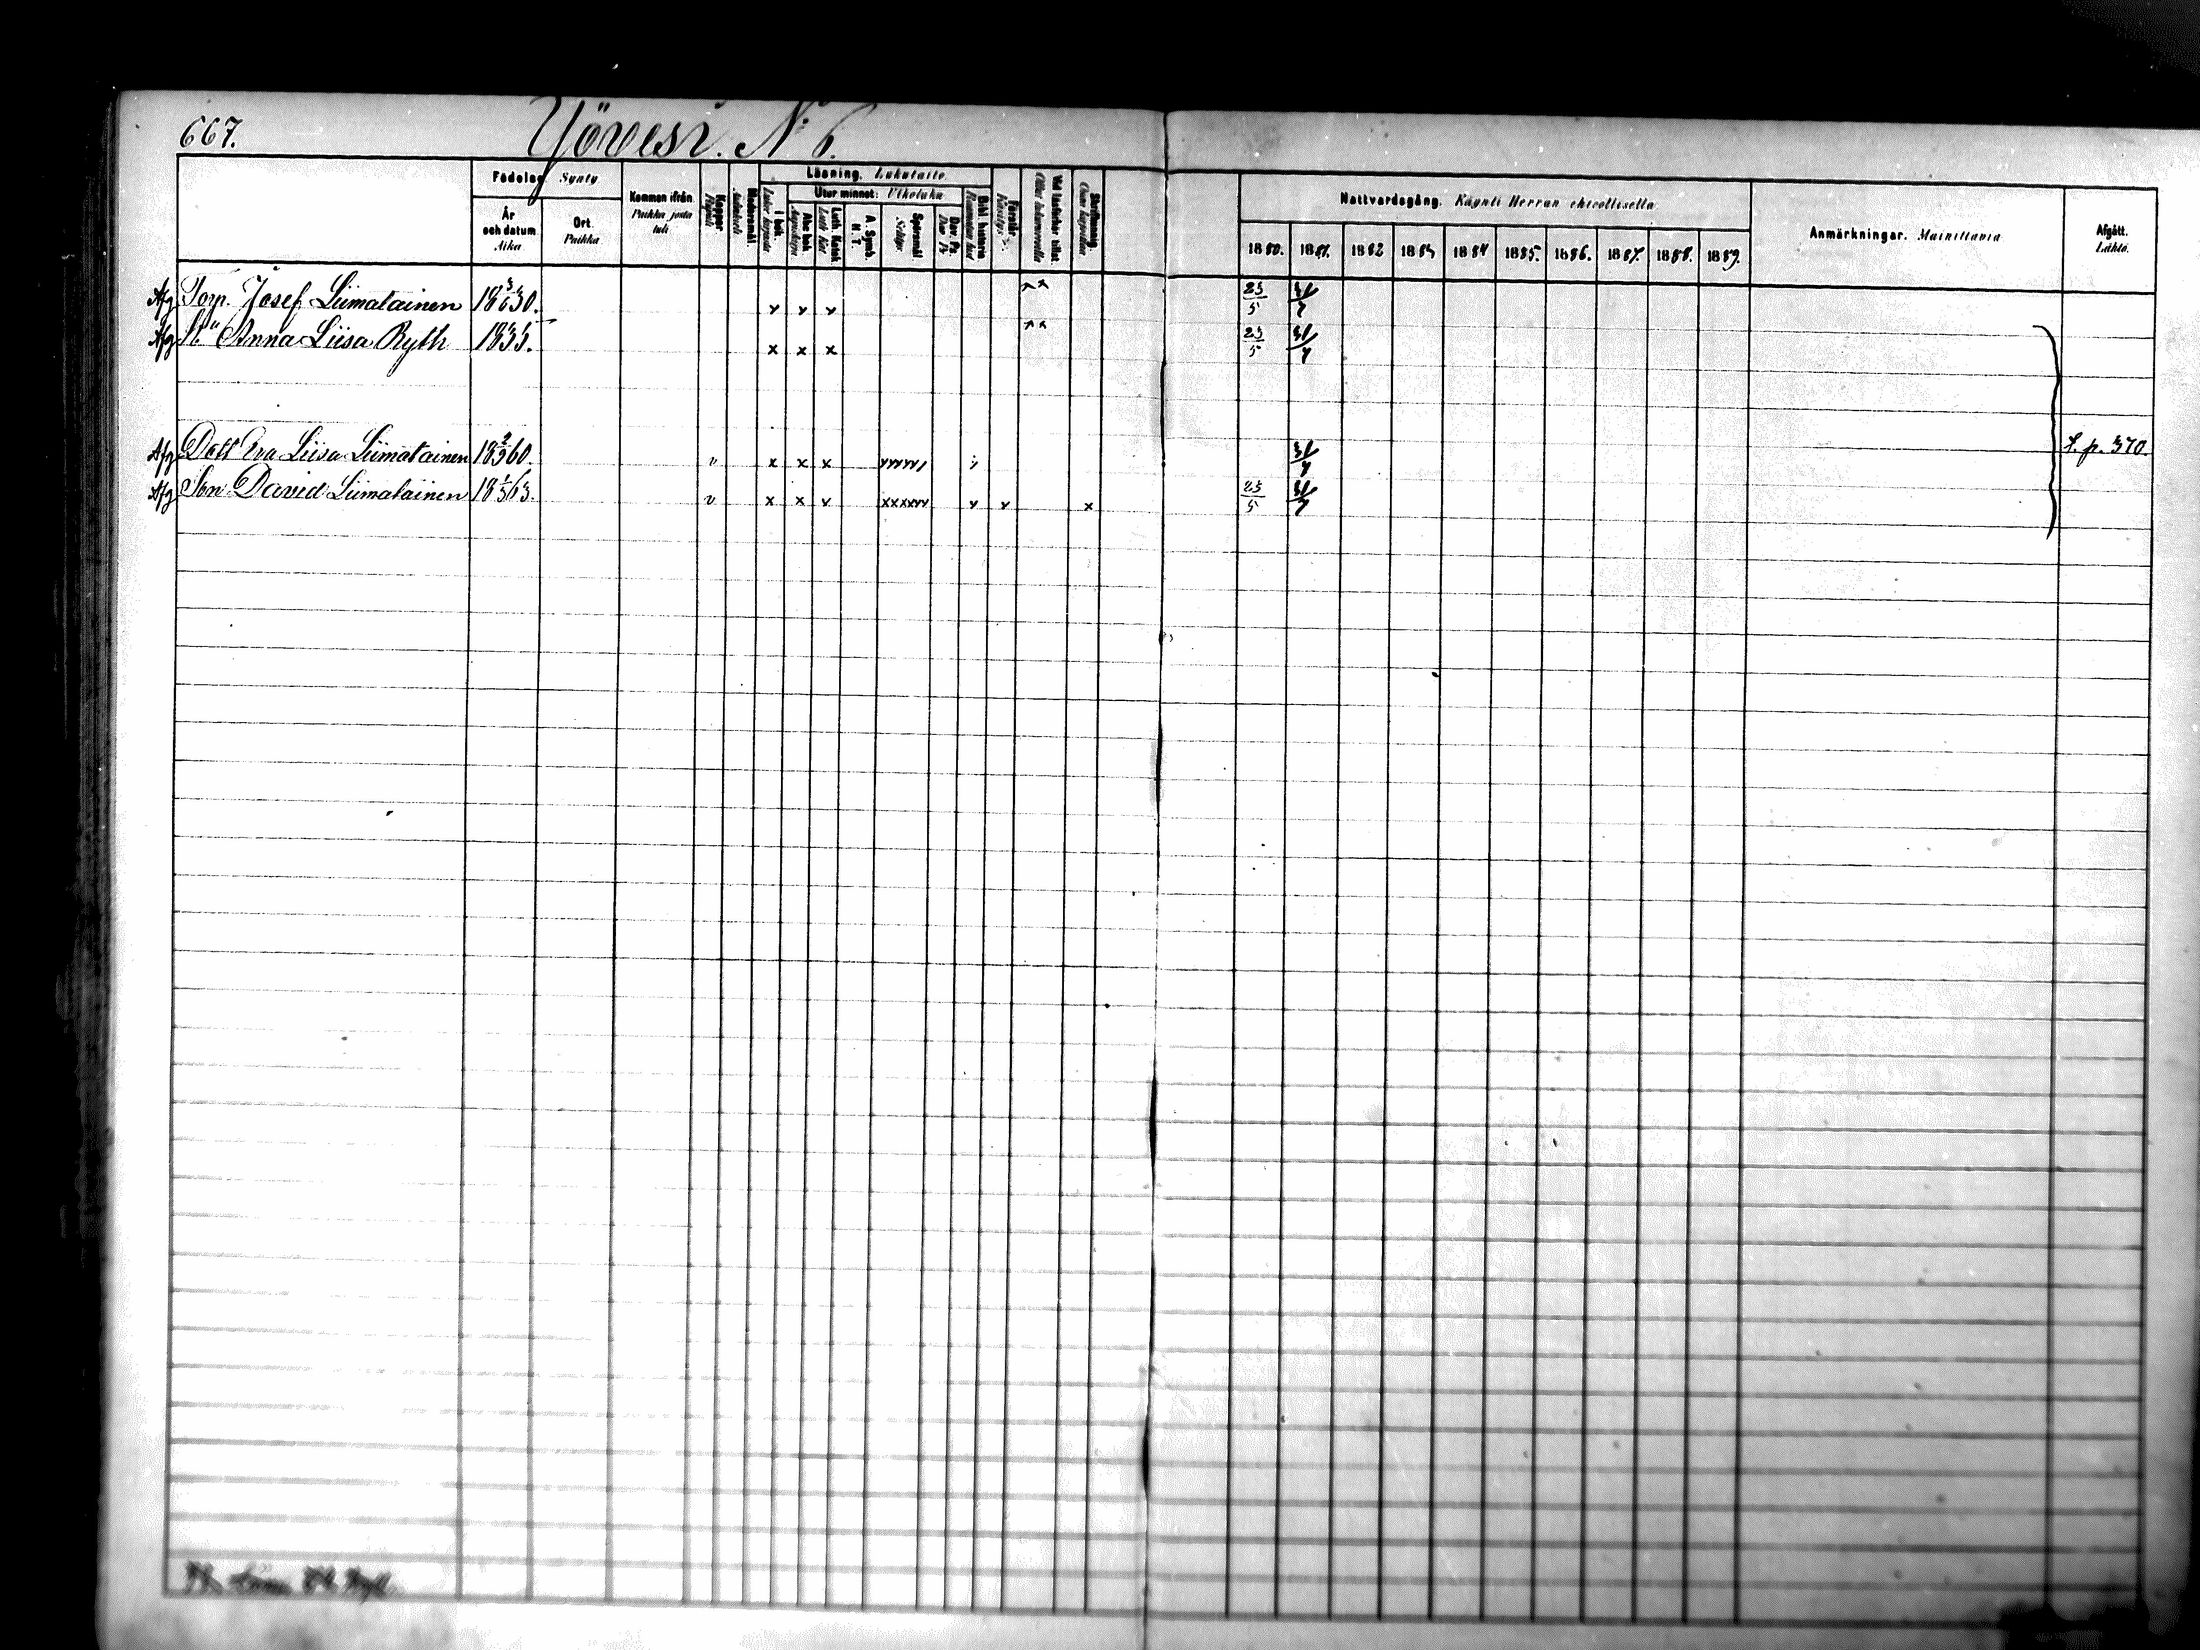 667. Yövesi. N:6.
Födelse. Synty
År och datum Aika
Ort. Paikka
Kommen ifrån. Paikka josta tuli
Koppor Rupuli
Läsning. Lukutaito
I bok.
Utur minnet: Ulkoluku
Abc bok
Luth. Katek.
A. Symb. H. T.
Spörsmål
Dav. Ps.
Bibl. historia
Förstår
Nattvardsgång. Käynti Herran ehtoollisella
1880. 1881. 1882 1883 1884 1885. 1886. 1887. 1888. 1889.
Anmärkningar. Mainittavia
Afgått. Lähtö.
Afg Torp. Josef Liimatainen 18 3/6 30. v v v 23/5 31/7
Afg H:u Anna Liisa Ryth 1835. x x x 23/5 31/7
Afg Dott Eva Liisa Liimatainen 18 2/9 60. v x x x 31/7 L. p. 370.
Afg Son David Liimatainen 18 1/3 63. v x x v xxxxvv v v x 23/5 31/7